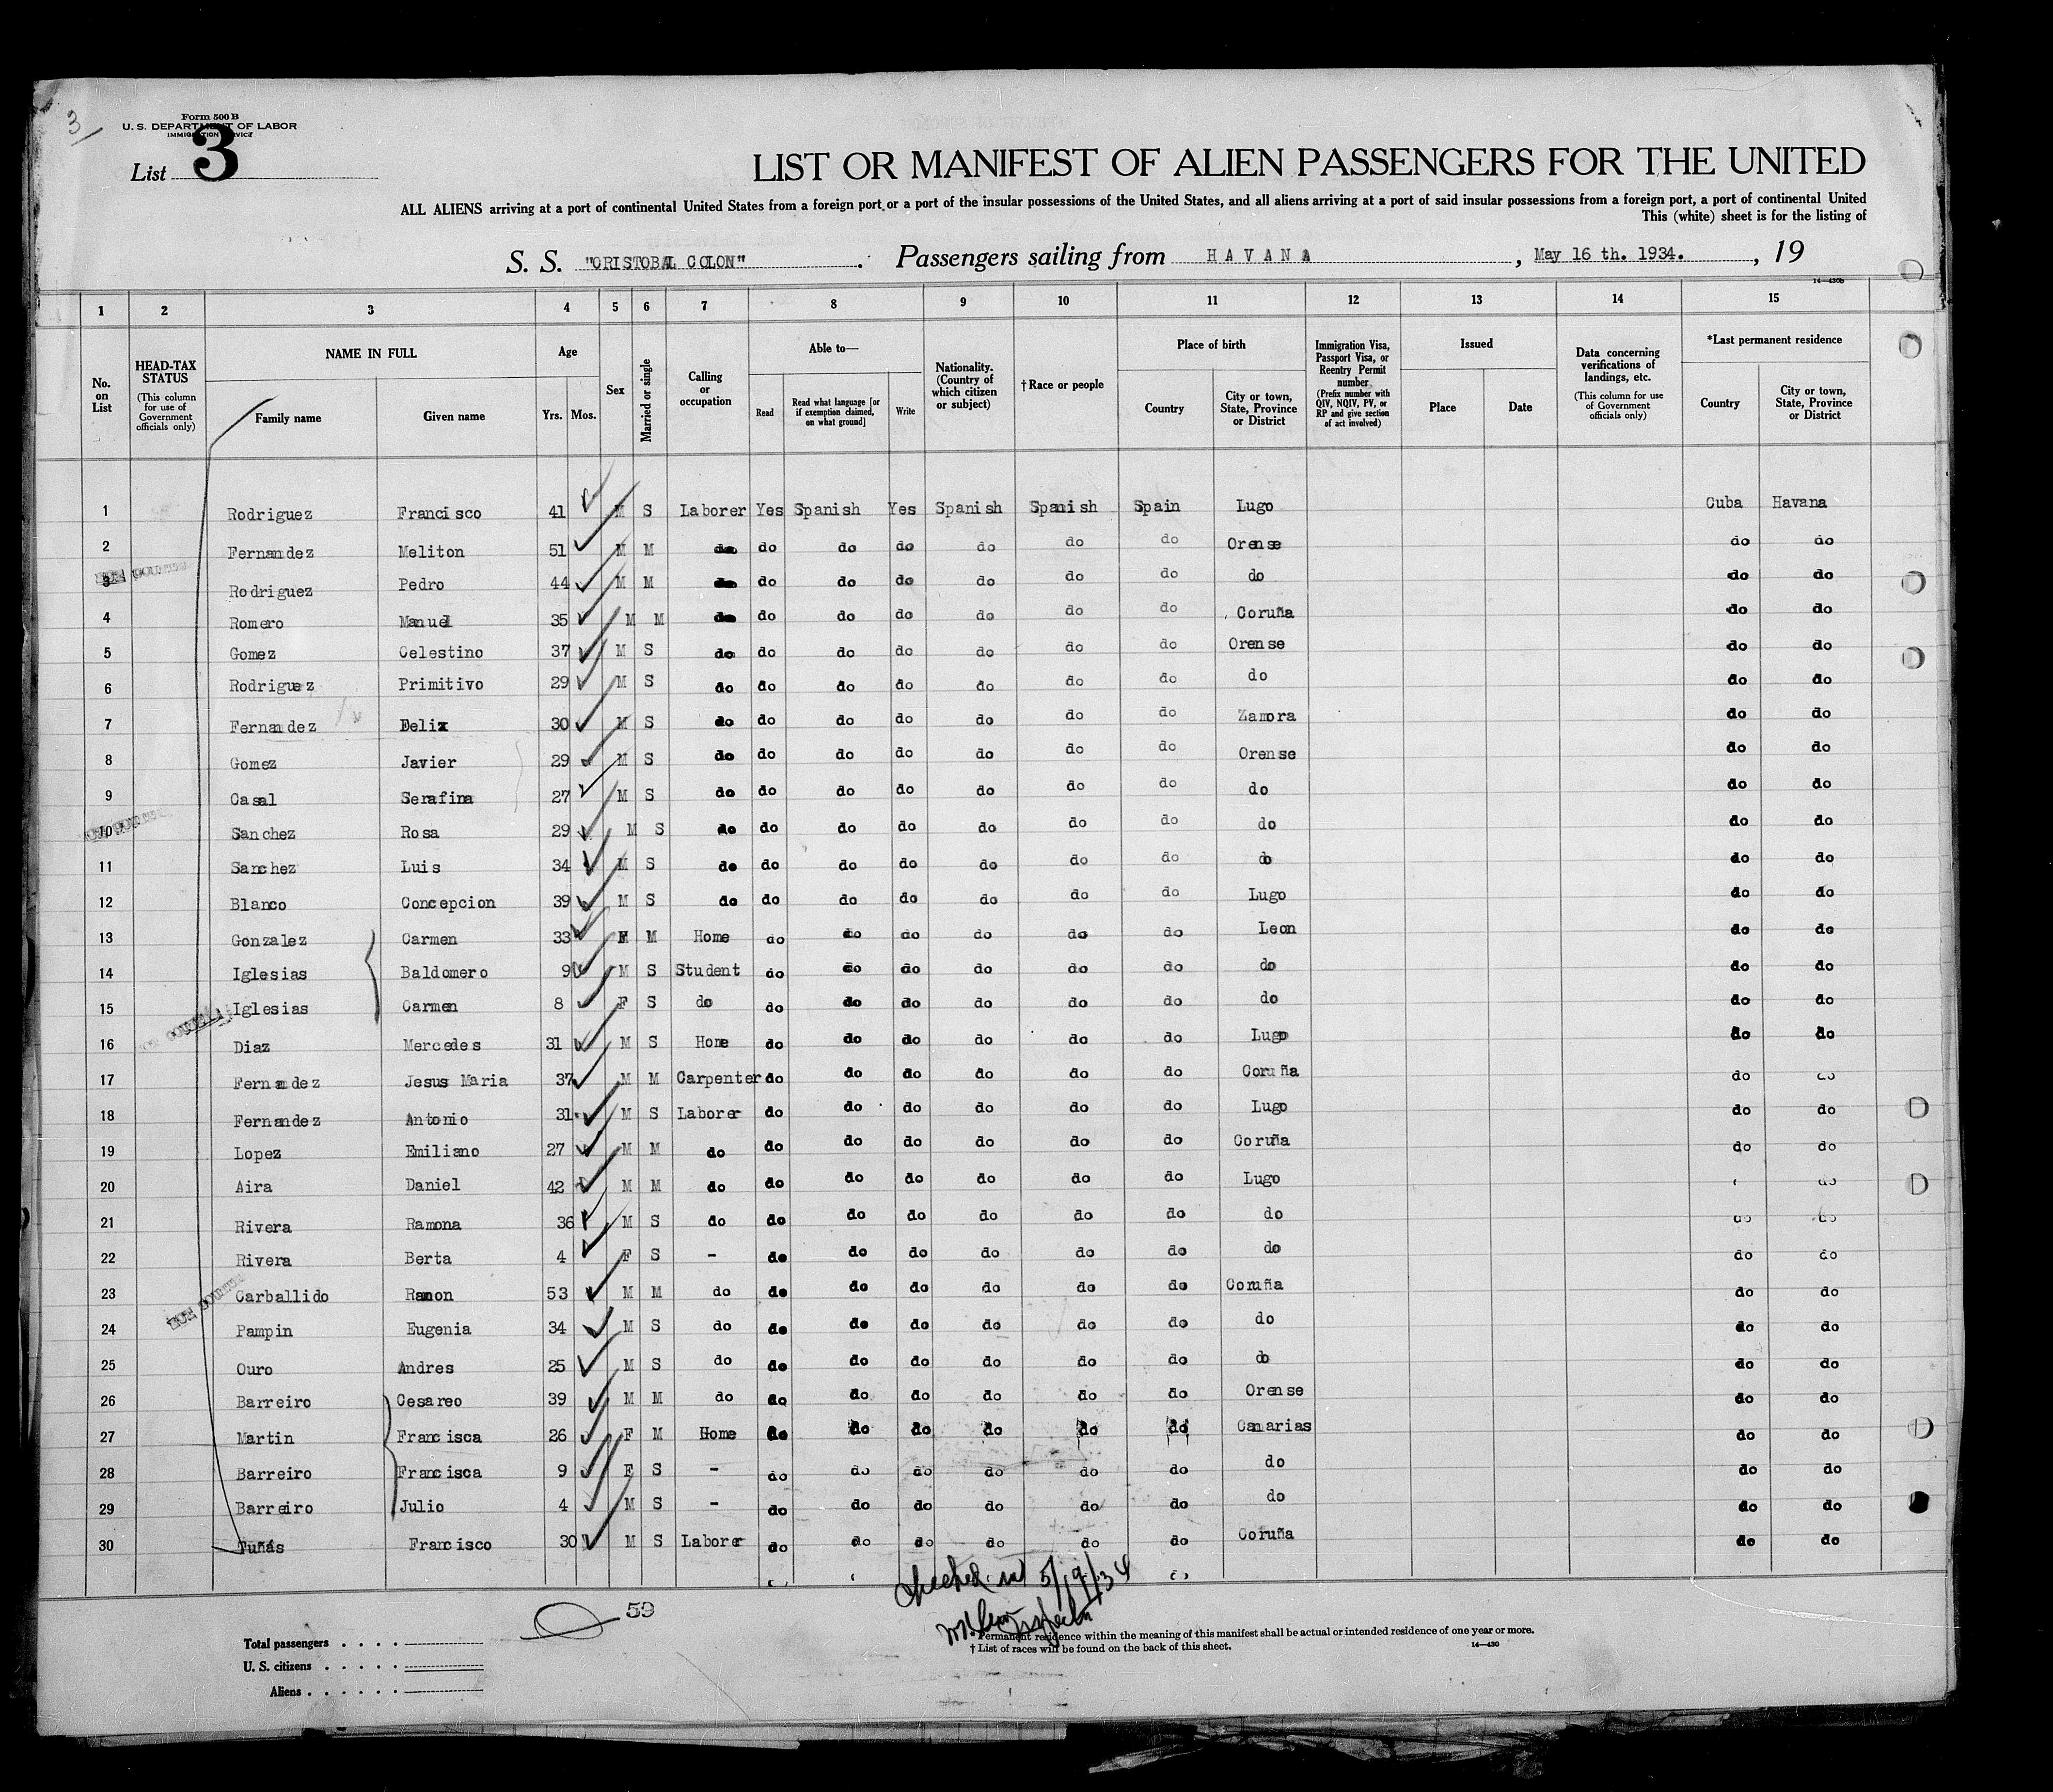 3
Form 500 B
U. S. DEPARTMENT OF LABOR
IMMIGRATION SERVICE
List 3
LIST OR MANIFEST OF ALIEN PASSENGERS FOR THE UNITED
ALL ALIENS arriving at a port of continental United States from a foreign port or a port of the insular possessions of the United States, and all aliens arriving at a port of said insular possessions from a foreign port, a port of continental United
This (white) sheet is for the listing of
S. S. "CRISTOBAL COLON" . Passengers sailing from HAVANA , May 16 th. 1934. , 19
14—430b
1 2 3 4 5 6 7 8 9 10 11 12 13 14 15
No. on List
HEAD-TAX STATUS (This column for use of Government officials only)
NAME IN FULL
Family name Given name
Age
Yrs. Mos.
Sex
Married or single
Calling or occupation
Able to—
Read
Read what language [or if exemption claimed, on what ground]
Write
Nationality. (Country of which citizen or subject)
†Race or people
Place of birth
Country
City or town, State, Province or District
Immigration Visa, Passport Visa, or Reentry Permit number (Prefix number with QIV, NQIV, PV, or RP and give section of act involved)
Issued
Place Date
Data concerning verifications of landings, etc. (This column for use of Government officials only)
*Last permanent residence
Country
City or town, State, Province or District
1 Rodriguez Francisco 41 M S Laborer Yes Spanish Yes Spanish Spanish Spain Lugo Cuba Havana
2 Fernandez Meliton 51 M M do do do do do do do Orense do do
3 Rodriguez Pedro 44 M M do do do do do do do do do do
4 Romero Manuel 35 M M do do do do do do do Coruña do do
5 Gomez Celestino 37 M S do do do do do do do Orense do do
6 Rodriguez Primitivo 29 M S do do do do do do do do do do
7 Fernandez Felix 30 M S do do do do do do do Zamora do do
8 Gomez Javier 29 M S do do do do do do do Orense do do
9 Casal Serafina 27 M S do do do do do do do do do do
10 Sanchez Rosa 29 M S do do do do do do do do do do
11 Sanchez Luis 34 M S do do do do do do do do do do
12 Blanco Concepcion 39 M S do do do do do do do Lugo do do
13 Gonzalez Carmen 33 F M Home do do do do do do Leon do do
14 Iglesias Baldomero 9 M S Student do do do do do do do do do
15 Iglesias Carmen 8 F S do do do do do do do do do do
16 Diaz Mercedes 31 M S Home do do do do do do Lugo do do
17 Fernandez Jesus Maria 37 M M Carpenter do do do do do do Coruña do do
18 Fernandez Antonio 31 M S Laborer do do do do do do Lugo do do
19 Lopez Emiliano 27 M M do do do do do do do Coruña do do
20 Aira Daniel 42 M M do do do do do do do Lugo do
21 Rivera Ramona 36 M S do do do do do do do do do do
22 Rivera Berta 4 F S - do do do do do do do do do
23 Carballido Ramon 53 M M do do do do do do do Coruña do do
24 Pampin Eugenia 34 M S do do do do do do do do do do
25 Ouro Andres 25 M S do do do do do do do do do do
26 Barreiro Cesareo 39 M M do do do do do do do Orense do do
27 Martin Francisca 26 F M Home do do do do do do Canarias do do
28 Barreiro Francisca 9 F S - do do do do do do do do do
29 Barreiro Julio 4 M S - do do do do do do do do do
30 Tuñás Francisco 30 M S Laborer do do do do do do Coruña do do
59
5/19/34
Total passengers . . . .
U. S. citizens . . . . .
Aliens . . . . . .
* Permanent residence within the meaning of this manifest shall be actual or intended residence of one year or more.
† List of races will be found on the back of this sheet.
14—430